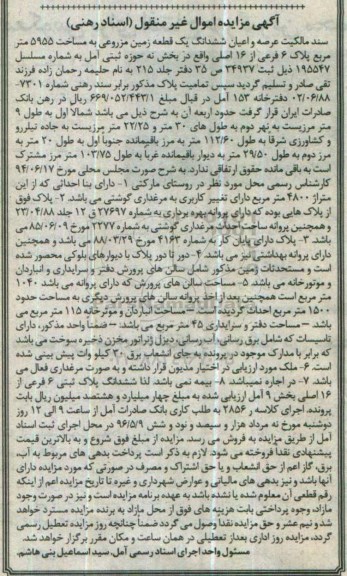 آگهی مزایده اموال غیر منقول (اسناد رهنی)
سند مالکیت عرصه و اعیان ششدانگ یک قطعه زمین مزروعی به مساحت ۵۹۵۵ متر
مربع پلاک ۶ فرعی از ۱۶ اصلی واقع در بخش نه حوزه ثبتی آمل به شماره مسلسل
۱۹۵۵۴۷ ذیل ثبت ۳۴۹۳۷ ص ۳۵ دفتر جلد ۲۱۵ به نام حلیمه رحمان زاده فرزند
تقی صادر و تسلیم گردید سپس تمامیت پلاک مذکور برابر سند رهنی شماره ۷۳۰۱-
۰۲/۰۶/۸۸ دفترخانه ۱۵۳ آمل در قبال مبلغ ۶۶۹/۰۵۲/۴۴۳/۱ ریال در رهن بانک
صادرات ایران قرار گرفت حدود اربعه آن به شرح ذیل می باشد شمالا اول به طول ۹
متر مرزیست به نهر دوم به طول های ۳۰ متر و ۲۲/۲۵ متر مرزیست به جاده نیلرزو
و کشاورزی شرقا به طول ۱۱۲/۶۰ متر به مرز باقیمانده جنوبا اول به طول ۲۰ متر به
مرز دوم به طول ۲۹/۵۰ متر به دیوار باقیمانده غربا به طول ۱۰۳/۷۵ متر مرز مشترک
است به باقی مانده حقوق ارتفاقی ندارد. به شرح صورت مجلس محلی مورخ ۹۴/۰۶/۱۷
کارشناس رسمی محل مورد نظر در روستای مارکتی ۱- دارای بنا احداثی که از این
متراژ ۴۸۰۰ متر مربع دارای تغییر کاربری به مرغداری گوشتی می باشد. ۲- پلاک فوق
از پلاک هایی بوده که دارای پروانه بهره برداری به شماره ۲۷۶۹۷ ق ۱۲ جلد ۲۳/۰۴/۸۸
و همچنین پروانه ساخت احداث مرغداری گوشتی به شماره ۲۳۷۷ مورخ ۸۵/۰۶/۰۹ می
باشد. ۳- پلاک دارای پایان کار به شماره ۴۱۶۳ مورخ ۸۸/۰۳/۲۹ می باشد و همچنین
دارای پروانه بهداشتی نیز می باشد. ۴- دور تا دور پلاک با دیوارهای بلوکی محصور شده
است و مستحدثات زمین مذکور شامل سالن های پرورش دفتر و سرایداری و انبار دان
و موتورخانه می باشد. ۵- مساحت سالن های پرورش که دارای پروانه می باشد ۱۰۴۰
متر مربع است همچنین بعد از اخذ پروانه سالن های پرورش دیگری به مساحت حدود
۱۵۰۰ متر مربع احداث گردید. مساحت انبار دان و موتورخانه ۱۱۵ متر مربع می
باشد. – مساحت دفتر و سرایداری ۴۵ متر مربع می باشد. – ضمنا واحد مذکور، دارای
تاسیسات که شامل برق رسانی، آب رسانی، دیزل ژنراتور مخزن ذخیره سوخت می باشد
که برابر با مدارک موجود در پرونده به جای انشعاب برق ۲۰ کیلو وات پیش بینی شده
است. ۶- ملک مورد ارزیابی در اختیار مدیون قرار داشته و به صورت مرغداری فعال می
باشد. ۷- در اجاره نمیباشد ۸- بیمه نمی باشد. لذا ششدانگ پلاک ثبتی ۶ فرعی از
۱۶ اصلی بخش ۹ آمل ارزیابی شده به مبلغ چهار میلیارد و هشتصد میلیون ریال بابت
پرونده اجرای کلاسه ر ۲۸۵۶ به طلب کاری بانک صادرات آمل از ساعت ۹ الی ۱۲ روز
دوشنبه مورخ نه مرداد هزار و سیصد و نود و شش ۹۶/۵/۹ در محل اجرای ثبت اسناد
آمل از طریق مزایده به فروش می رسد. مزایده از مبلغ فوق شروع و به بالاترین قیمت
پیشنهادی نقدا فروخته می شود. لازم به ذکر است پرداخت بدهی های مربوط به آب،
برق، گاز اعم از حق انشعاب و یا حق اشتراک و مصرف در صورتی که مورد مزایده دارای
آنها باشد و نیز بدهی های مالیاتی و عوارض شهرداری و غیره تا تاریخ مزایده اعم از اینکه
رقم قطعی آن معلوم شده یا نشده باشد به عهده برنده مزایده است و نیز در صورت وجود
مازاد، وجوه پرداختی بابت هزینه های فوق از محل مازاد به برنده مزایده مسترد خواهد
شد و نیم عشر و حق مزایده نقدا وصول می گردد ضمنا چنانچه روز مزایده تعطیل رسمی
گردد، مزایده روز اداری بعد از تعطیلی در همان ساعت و مکان مقرر برگزار خواهد شد.
مسئول واحد اجرای اسناد رسمی آمل، سید اسماعیل بنی هاشم.